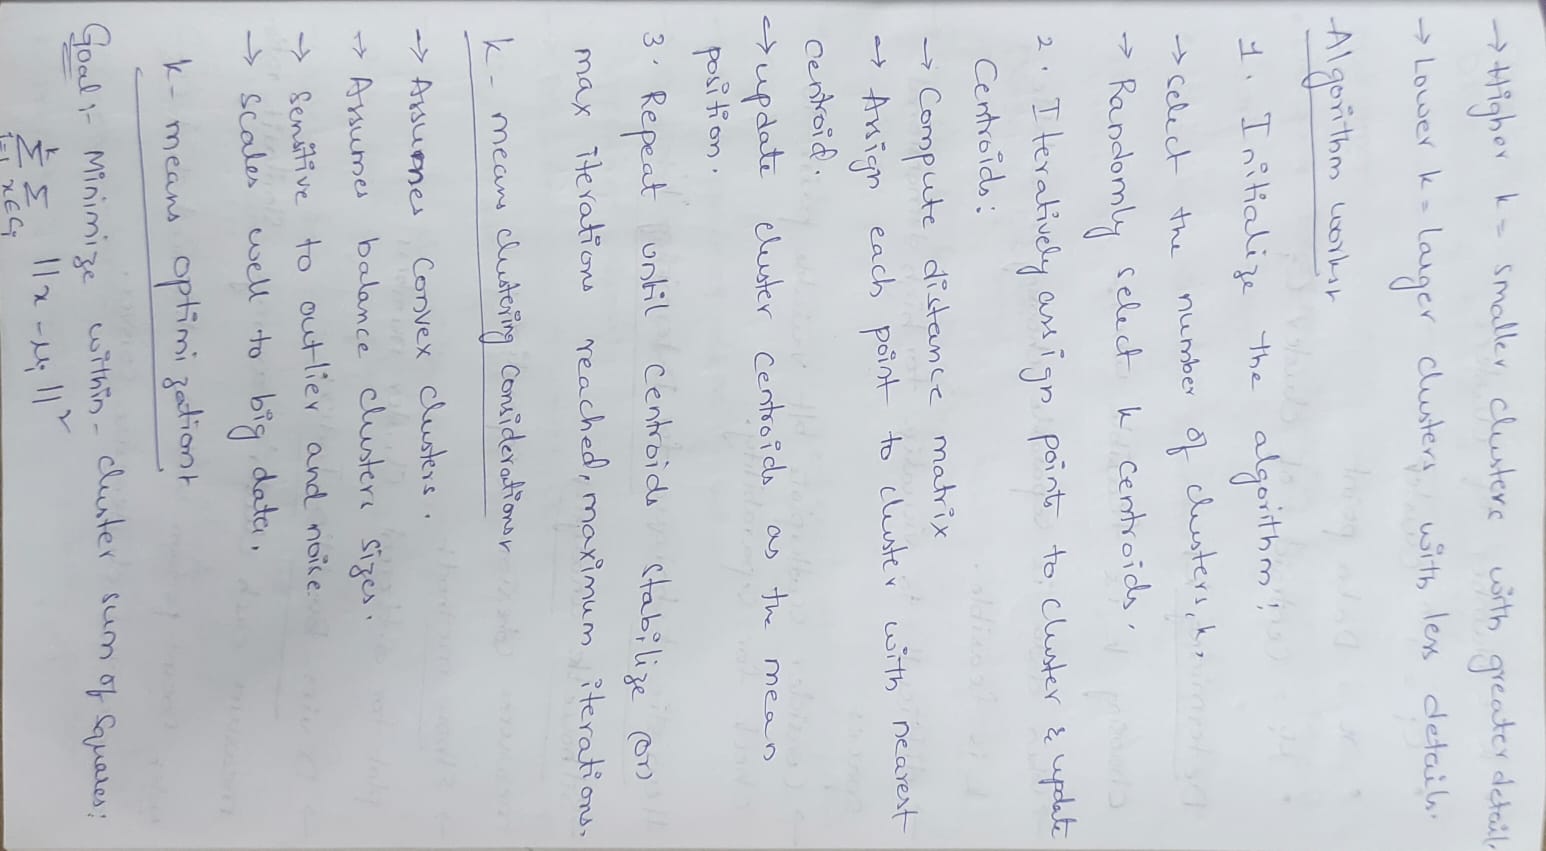 → Higher k = smaller clusters with greater detail.
→ Lower k = larger clusters with less details.
Algorithm works:-
1. Initialize the algorithm:
→ select the number of clusters, k,
→ Randomly select k centroids.
2. Iteratively assign points to cluster & update
Centroids:
→ Compute distance matrix
→ Assign each point to cluster with nearest
centroid.
→ update cluster centroids as the mean
position.
3. Repeat until centroids stabilize (or)
max iterations reached, maximum iterations.
k-means clustering considerations:-
→ Assumes convex clusters.
→ Assumes balance clusters sizes.
→ Sensitive to outlier and noise
→ scales well to big data.
k-means optimization:-
Goal:- Minimize within-cluster sum of squares:
k∑i=1 ∑x∈Ci ||x - μi||²